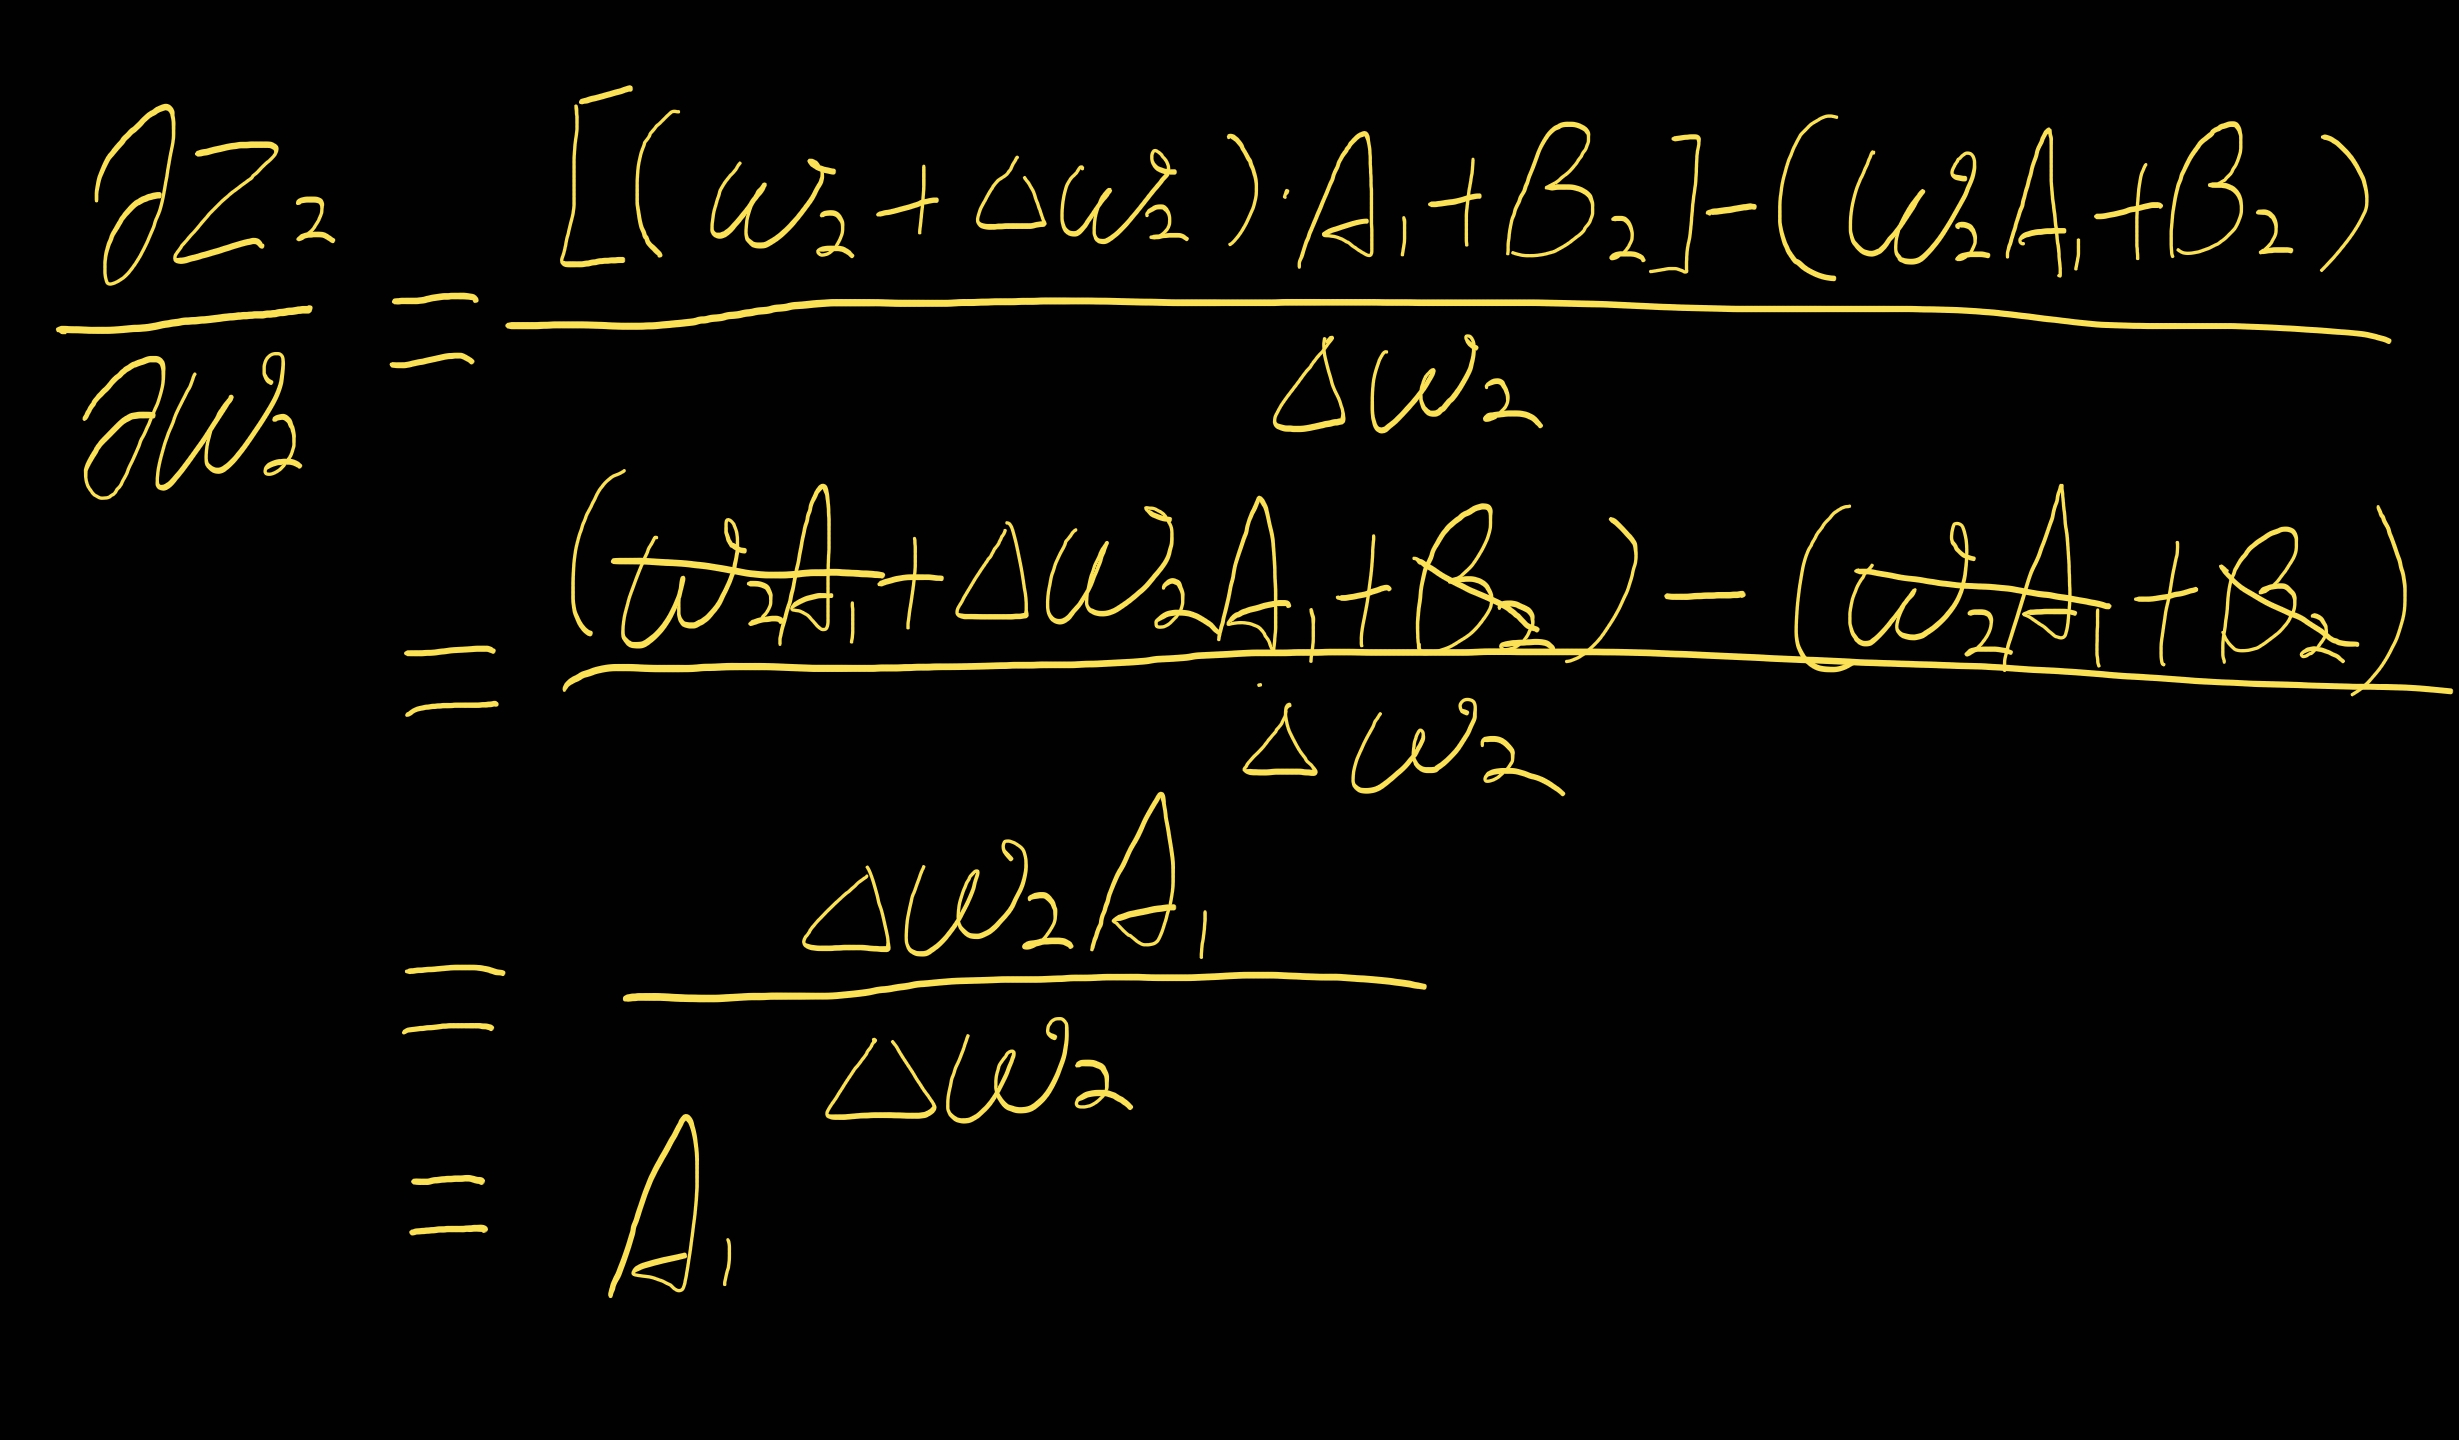 ∂Z₂/∂W₂ = [(W₂+ΔW₂)·A₁+B₂]-(W₂A₁+B₂)/ΔW₂
= (W₂A₁+ΔW₂A₁+B₂)-(W₂A₁+B₂)/ΔW₂
= ΔW₂A₁/ΔW₂
= A₁